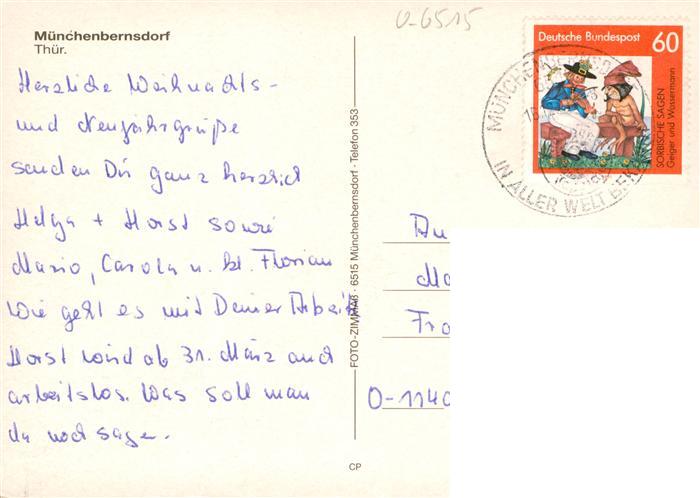 Münchenbernsdorf
Thür.
O-6515
Deutsche Bundespost 60
SORBISCHE SAGEN
Geiger und Wassermann
IN ALLER WELT
Herzliche Weihnachts-
und Neujahrsgrüße
senden Dir ganz herzlich
Helga + Horst sowie
Mario, Carola u. kl. Florian
Wie geht es mit Deiner Arbeit
Horst wird ab 31. März auch
arbeitslos. Was soll man
da noch sagen.
FOTO-ZIMMAß · 6515 Münchenbernsdorf · Telefon 353
Fra
O-1140
CP